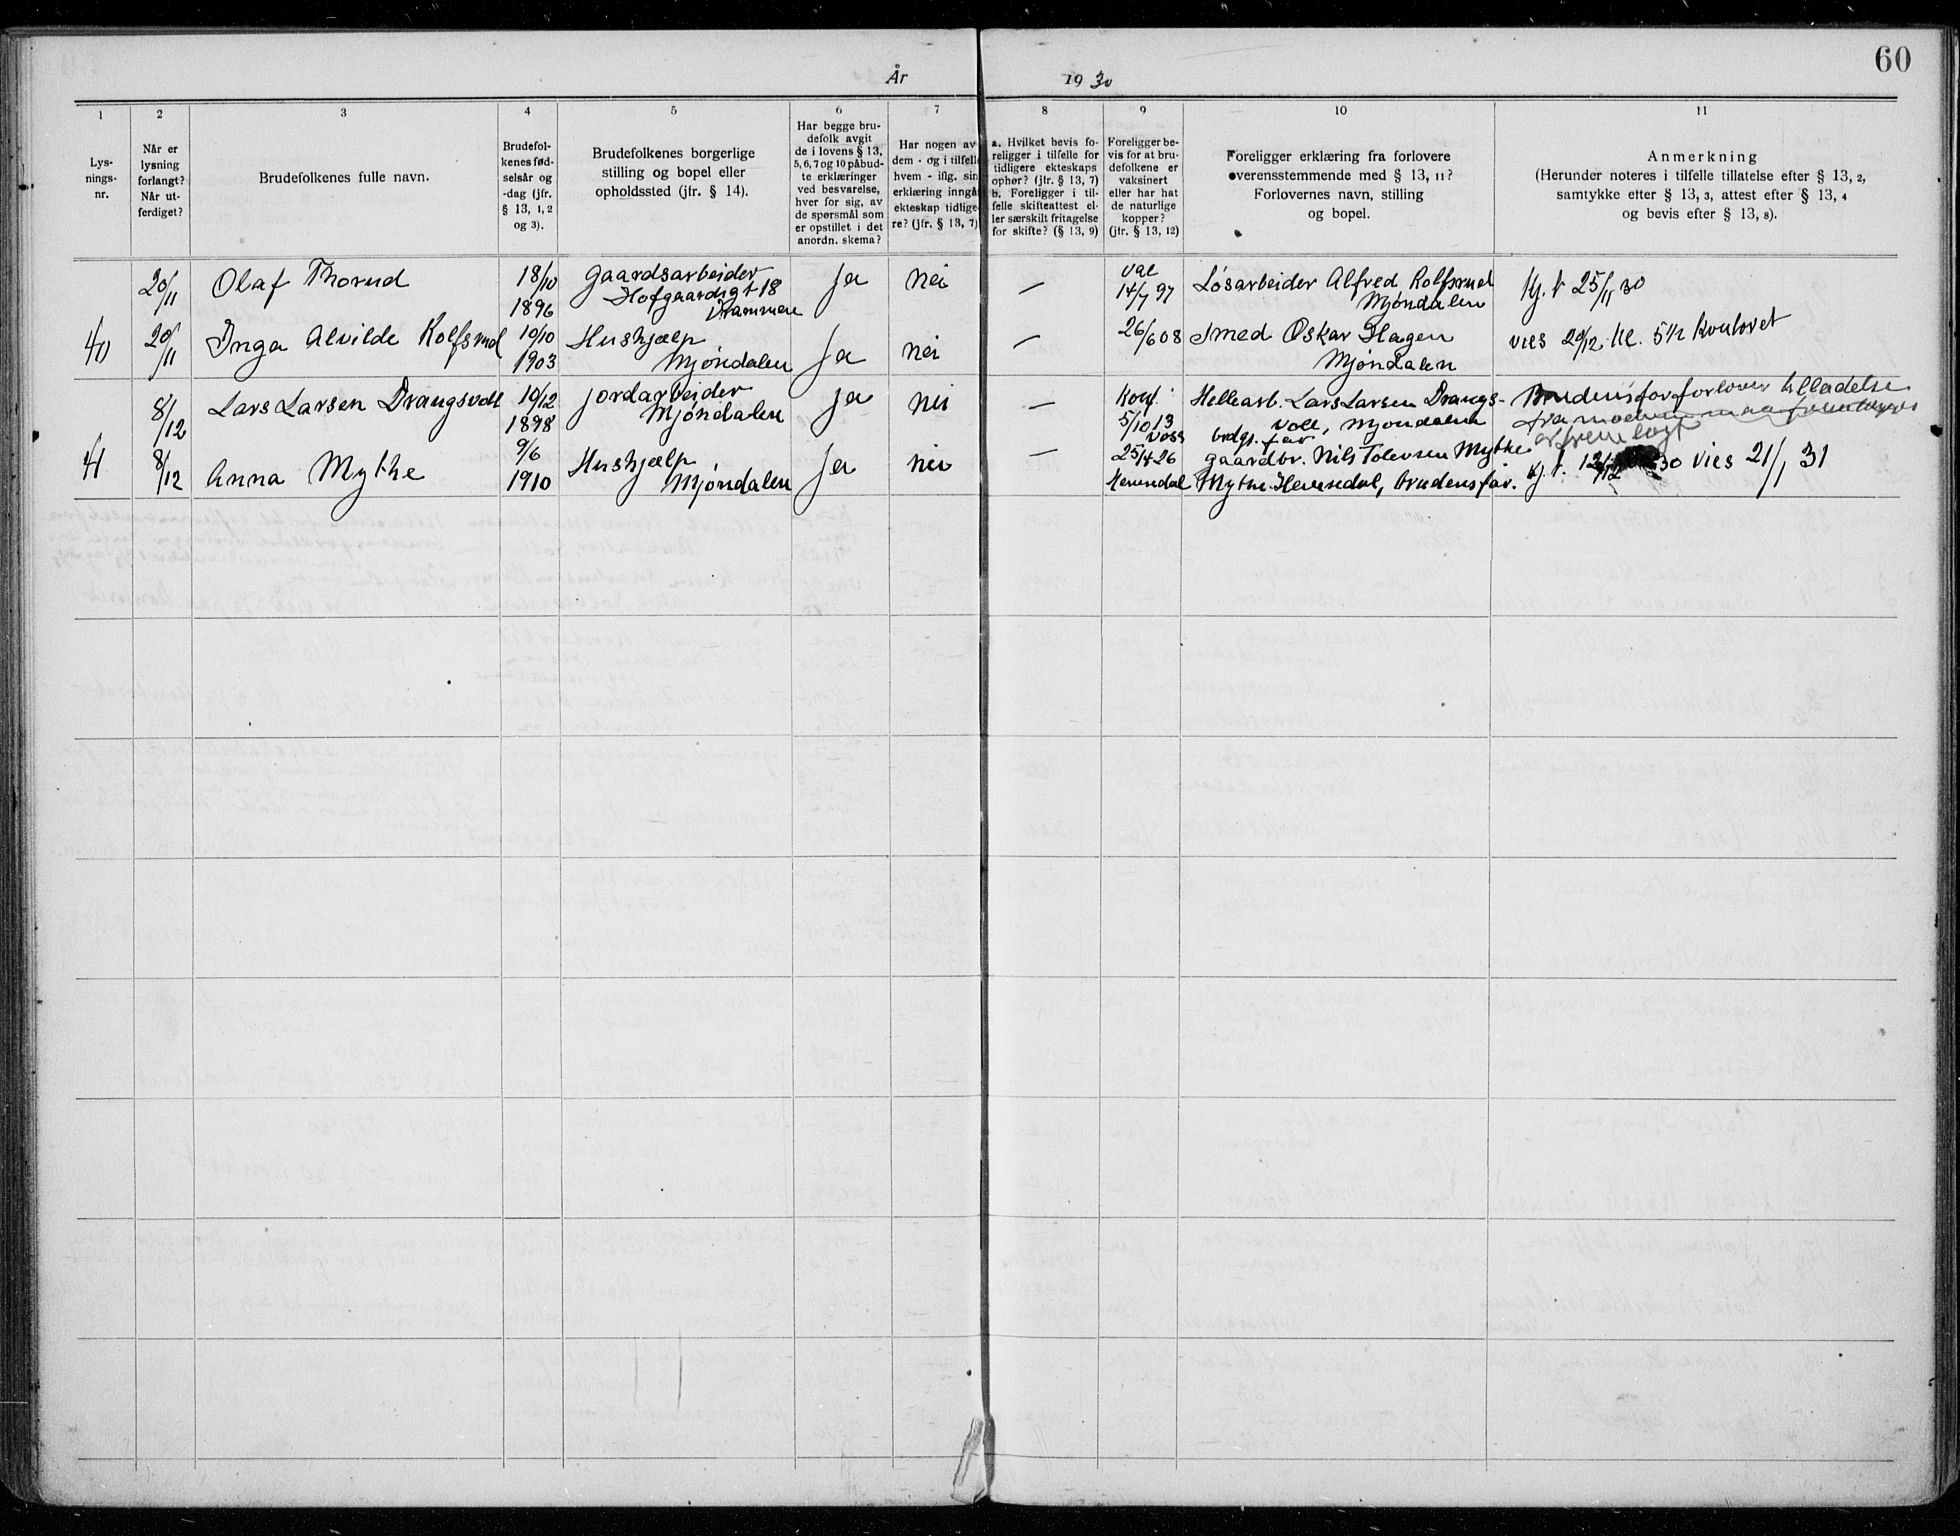 60
År 1930
1 2 3 4 5 6 7 8 9 10 11
Lys-
nings-
nr.
Når er
lysning
forlangt?
Når ut-
ferdiget?
Brudefolkenes fulle navn.
Brudefol-
kenes fød-
selsår og
-dag (jfr.
§ 13, 1, 2
og 3).
Brudefolkenes borgerlige
stilling og bopel eller
opholdssted (jfr. § 14).
Har begge bru-
defolk avgit
de i lovens § 13,
5, 6, 7 og 10 påbud-
te erklæringer
ved besvarelse,
hver for sig, av
de spørsmål som
er opstillet i det
anordn. skema?
Har nogen av
dem - og i tilfelle
hvem - iflg. sin
erklæring inngåt
ekteskap tidlige-
re? (jfr. § 13, 7)
a. Hvilket bevis fo-
religger i tilfelle for
tidligere ekteskaps
ophør? (jfr. § 13, 7)
b. Foreligger i til-
felle skifteattest el-
ler særskilt fritagelse
for skifte? (§ 13, 9)
Foreligger be-
vis for at bru-
defolkene er
vaksinert
eller har hat
de naturlige
kopper?
(jfr. § 13, 12)
Foreligger erklæring fra forlovere
overensstemmende med § 13, 11?
Forlovernes navn, stilling
og bopel.
Anmerkning
(Herunder noteres i tilfelle tillatelse efter § 13, 2,
samtykke etter § 13, 3, attest efter § 13, 4
og bevis efter § 13, 8).
20/11 Olaf Thorud 18/10 1896 Gaardsarbeider Hofgaardsgt 18 Drammen Ja nei — vac 14/7 97 Løsarbeider Alfred Rolfsrud Mjøndalen Kj. t 25/11 30
40 20/11 Inga Alvilde Rolfsrud 10/10 1903 Hushjælp Mjøndalen Ja nei — 26/6 08 Smed Oskar Hagen Mjøndalen vies 20/12 kl. 5 1/2
8/12 Lars Larsen Drangsvoll 10/12 1898 Jordarbeider Mjøndalen Ja nei — Konf. 5/10 13 Voss Hellearb. Lars Larsen Drangs-
voll, Mjøndalen brdgs. far
41 8/12 Anna Mythe 9/6 1910 Hushjælp Mjøndalen Ja nei — 25/4 26 Hemsedal Gaardbr. Nils Tolevsen Mythe
Mythe Hemsedal, brudens far. Kj. t. 12/12 30 vies 21/1 31